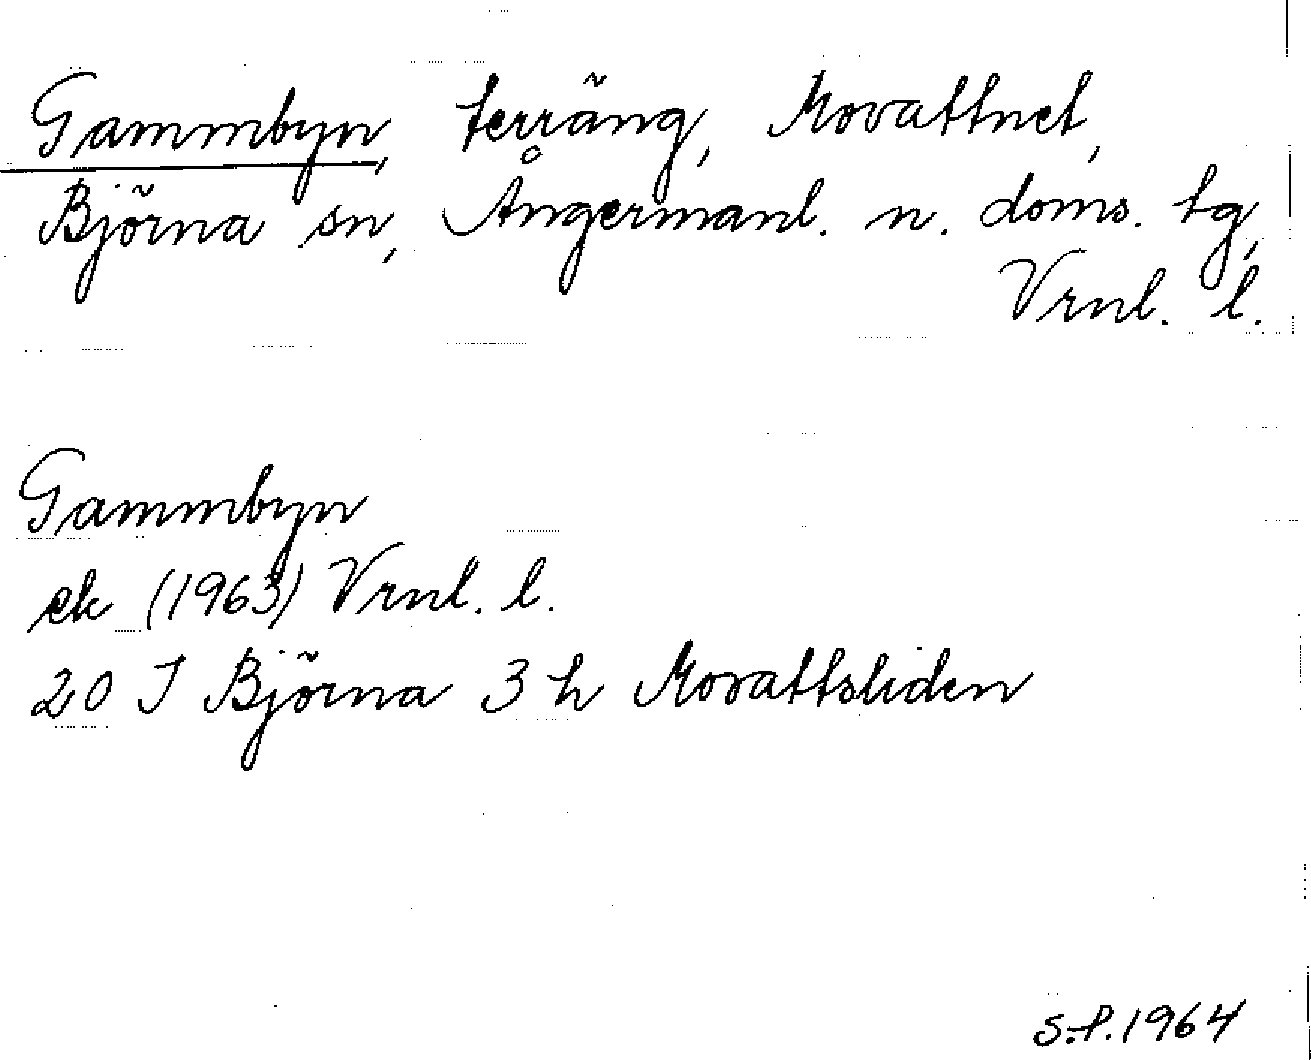 Gammbyn, terräng, Movattnet,
Björna sn, Ångermanl. n. doms. tg,
Vrnl. l.
Gammbyn
ek (1963) Vrnl. l.
20 I Björna 3 h Movattsliden
S.P. 1964